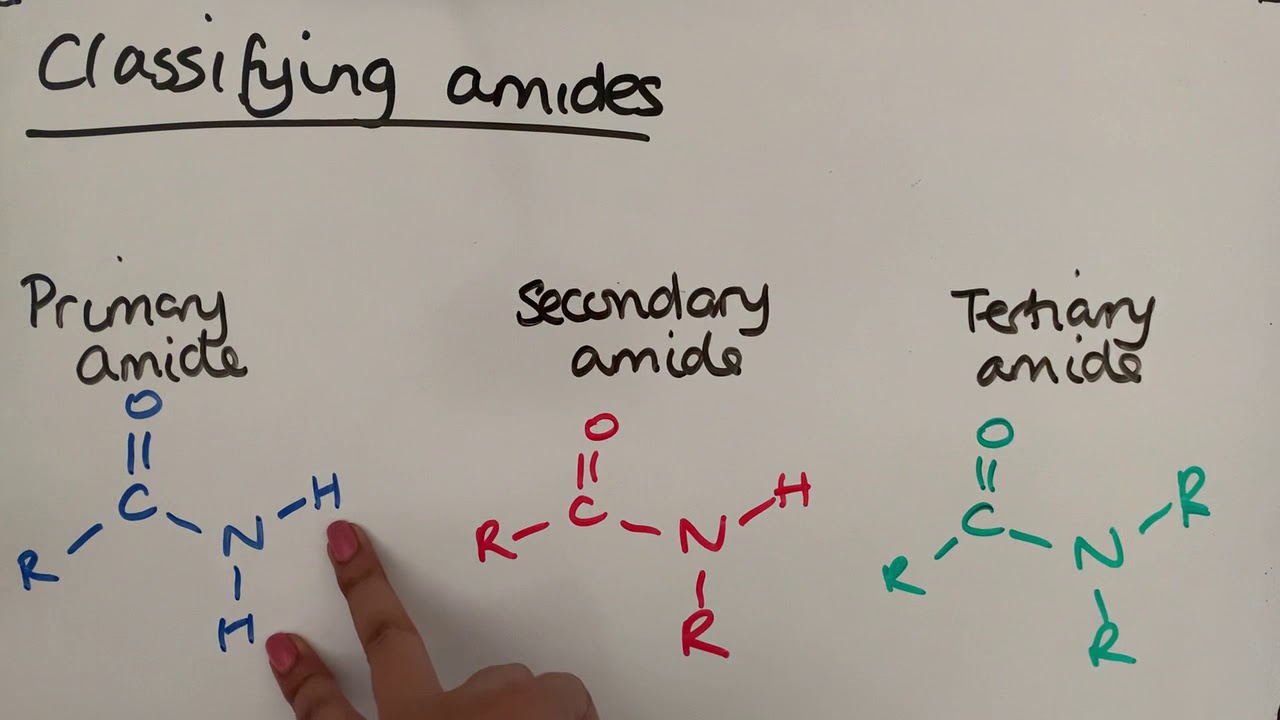 Classifying amides
Primary
amide
Secondary
amide
Tertiary
amide
O
||
C
R
N
H
H
O
||
C
R
N
H
R
O
||
C
R
N
R
R